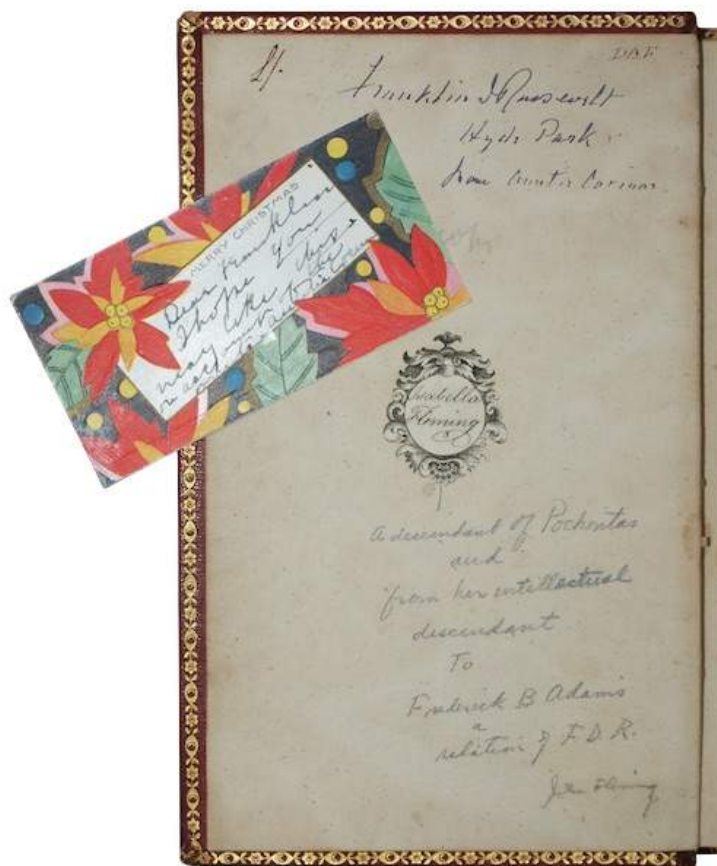 Franklin D Roosevelt
Hyde Park
from Auntie Corinne
MERRY CHRISTMAS
Dear Franklin
I hope you
may like this
Isabella
Fleming
A descendant of Pochontas
and
from her intellectual
descendant
To
Frederick B Adams
a
relation of F.D.R.
John Fleming